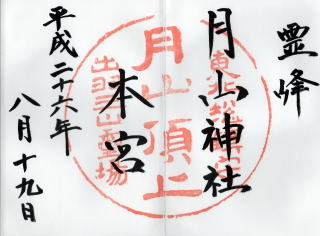 霊峰
月山神社
本宮
平成二十六年
八月十九日
月山頂上
出羽三山霊場